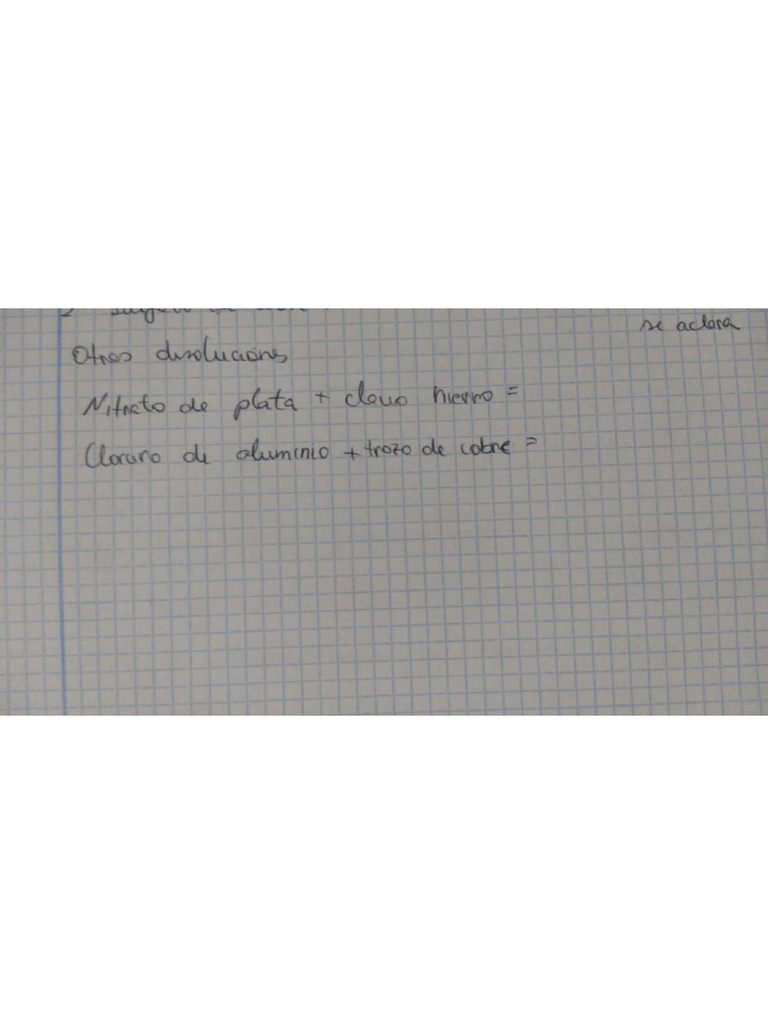 se aclara
Otras disoluciones
Nitrato de plata + clavo hierro =
Cloruro de aluminio + trozo de cobre =